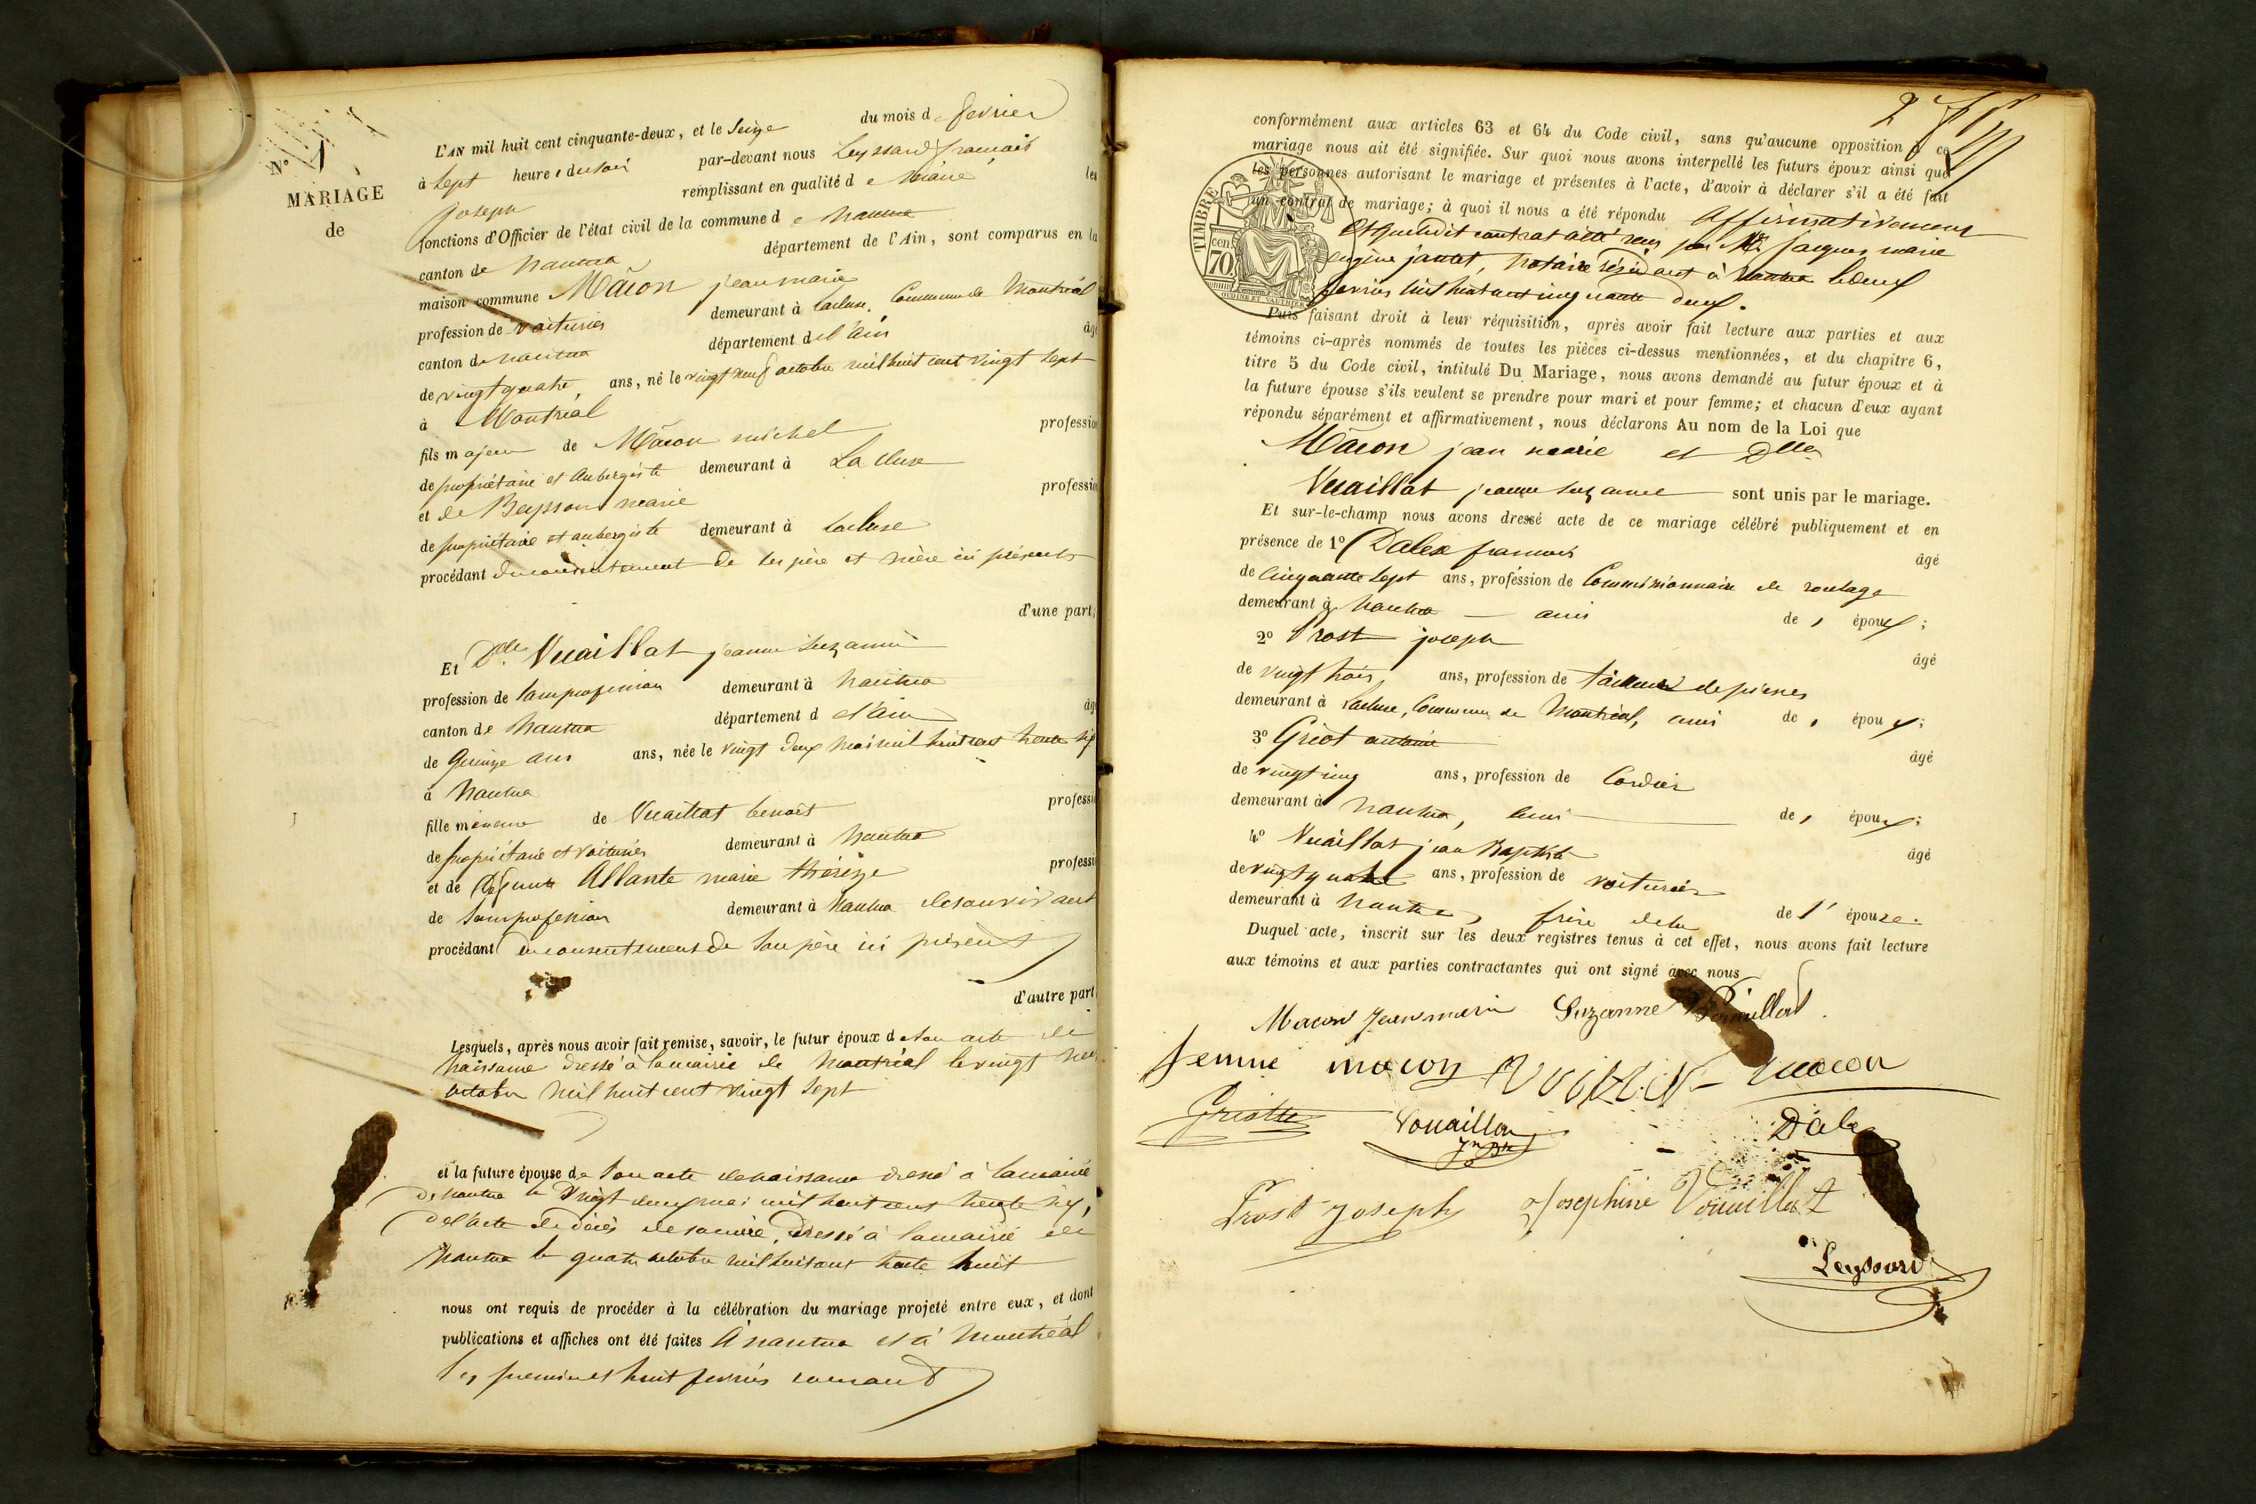 N° 1
MARIAGE
de
L'AN mil huit cent cinquante-deux, et le Seize du mois de fevrier
à Sept heures du soir par-devant nous Leyssard françois
joseph remplissant en qualité de Maire les
fonctions d'Officier de l'état civil de la commune de nantua
canton de nantua département de l'Ain, sont comparus en la
maison commune Mâcon jean marie
profession de voiturier demeurant à Lacluse, Commune de Montréal
canton de nantua département de l'ain âgé
de vingt quatre ans, né le vingt neuf octobre mil huit cent vingt sept
à Montréal
fils majeur de Mâcon michel profession
de propriétaire et aubergiste demeurant à La cluse
et de Beysson marie profession
de propriétaire et aubergiste demeurant à Lacluse
procédant du consentement de ses père et mère ici présents
d'une part;
Et Dlle Vuaillat jeanne Suzanne
profession de sans profession demeurant à nantua
canton de nantua département de l'ain âgé
de quinze ans ans, née le vingt deux mai mil huit cent trente six
à nantua
fille mineure de Vuaillat benoit profession
de propriétaire et voiturier demeurant à nantua
et de défunte Allante marie thérèze profession
de sans profession demeurant à nantua de son vivant
procédant du consentement de son père ici présent
d'autre part.
Lesquels, après nous avoir fait remise, savoir, le futur époux de son acte de
naissance dressé à la mairie de montréal le vingt neuf
octobre mil huit cent vingt sept
et la future épouse de son acte de naissance dressé à la mairie
de nantua le vingt deux mai mil huit cent trente six,
de l'acte de décès de sa mère, dressé à la mairie de
nantua le quatre octobre mil huit cent trente huit
nous ont requis de procéder à la célébration du mariage projeté entre eux, et dont
publications et affiches ont été faites à nantua et à montréal
les premier et huit fevrier courant
2
conformément aux articles 63 et 64 du Code civil, sans qu'aucune opposition à ce
mariage nous ait été signifiée. Sur quoi nous avons interpellé les futurs époux ainsi que
les personnes autorisant le mariage et présentes à l'acte, d'avoir à déclarer s'il a été fait
un contrat de mariage; à quoi il nous a été répondu affirmativement
et que ledit contrat a été reçu par Me jacques marie
eugène jantet, notaire résidant à nantua le deux
fevrier mil huit cent cinquante deux.
TIMBRE
cen. 70
Puis faisant droit à leur réquisition, après avoir fait lecture aux parties et aux
témoins ci-après nommés de toutes les pièces ci-dessus mentionnées, et du chapitre 6,
titre 5 du Code civil, intitulé Du Mariage, nous avons demandé au futur époux et à
la future épouse s'ils veulent se prendre pour mari et pour femme; et chacun d'eux ayant
répondu séparément et affirmativement, nous déclarons Au nom de la Loi que
Mâcon jean marie et Dlle
Vuaillat jeanne suzanne sont unis par le mariage.
Et sur-le-champ nous avons dressé acte de ce mariage célébré publiquement et en
présence de 1° Dalex francois âgé
de cinquante sept ans, profession de Commissionnaire de roulage
demeurant à nantua ami de époux;
2° Prost joseph âgé
de vingt trois ans, profession de tailleur de pierres
demeurant à Lacluse, Commune de Montréal, ami de époux;
3° Griot antoine âgé
de vingt cinq ans, profession de Cordier
demeurant à nantua, ami de époux;
4° Vuaillat jean Baptiste âgé
de vingt quatre ans, profession de voiturier
demeurant à nantua, frère de la de l'épouze.
Duquel acte, inscrit sur les deux registres tenus à cet effet, nous avons fait lecture
aux témoins et aux parties contractantes qui ont signé avec nous
Macon Jean marie Suzanne Vouaillat.
femme macon macon
Griotte Vouailla Jn Bte Dale
Prost Joseph Josephine Vouaillat
Leyssard